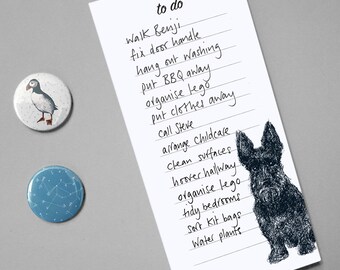 to do
walk Benji
fix door handle
hang out washing
put BBQ away
organise lego
put clothes away
call Steve
arrange childcare
clean surfaces
hoover hallway
organise lego
tidy bedrooms
sort kit bags
water plants